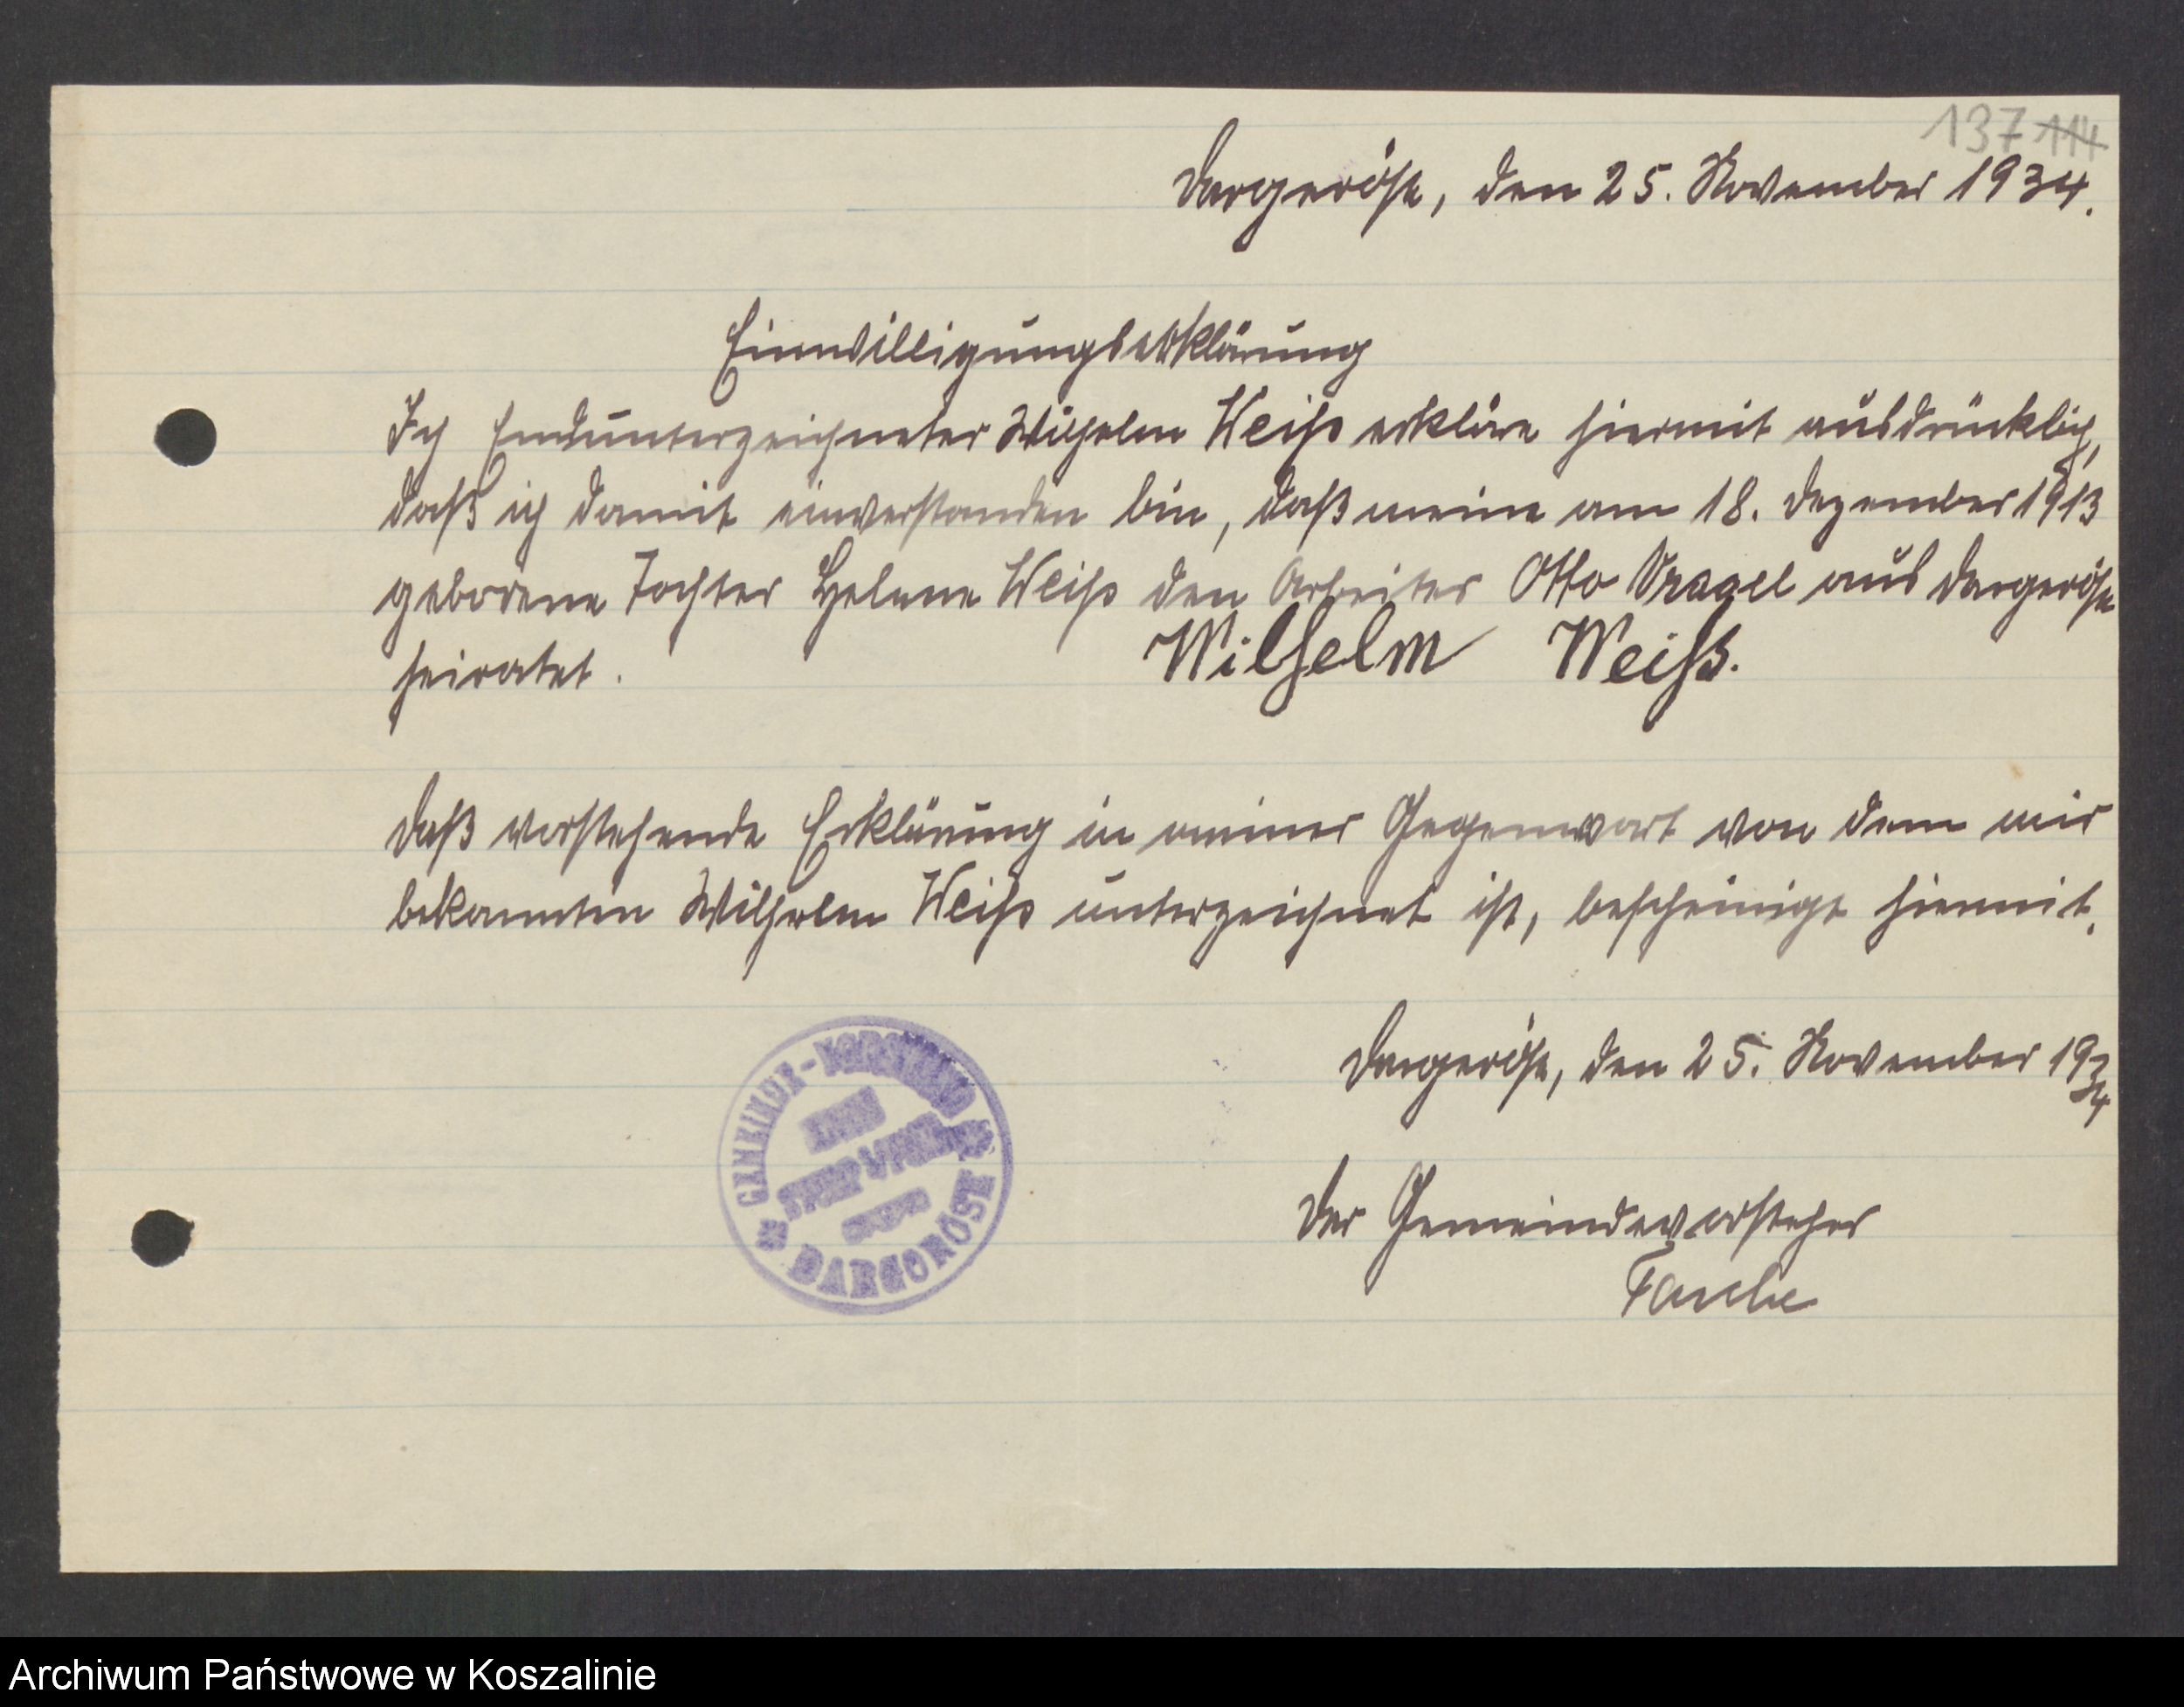 137 114
Dargeröse, den 25. November 1934.
Einwilligungserklärung
Ich Endunterzeichneter Wilhelm Weiß erkläre hiermit ausdrücklich,
daß ich damit einverstanden bin, daß meine am 18. Dezember 1913
geborene Tochter Helene Weiß den Arbeiter Otto aus Dargeröse
heiratet.
Wilhelm Weiß.
Daß vorstehende Erklärung in meiner Gegenwart von dem mir
bekannten Wilhelm Weiß unterzeichnet ist, bescheinigt hiermit.
Dargeröse, den 25. November 1934
GEMEINDE-VORSTAND
KREIS
STOLP
DARGERÖSE
Der Gemeindevorsteher
Archiwum Państwowe w Koszalinie